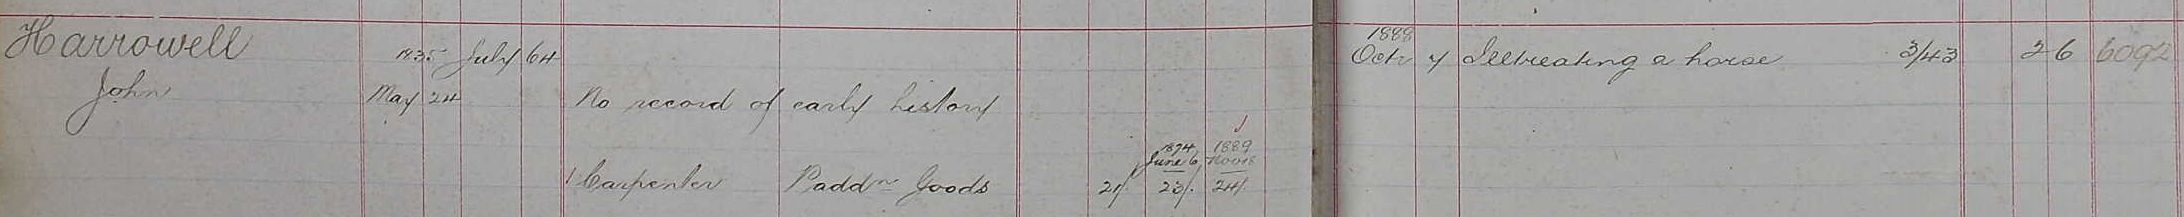 Harrowell 1835 July 64 1888 Octr 4 Illtreating a horse 3/43 2 6 6092
John May 24 No record of early history
1874 1889
June 6 Nov 18
Carpenter Paddn Goods 21/. 23/. 24/.